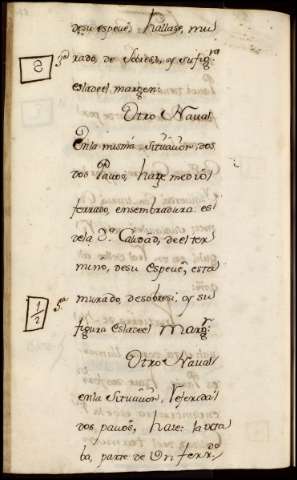 desu espeuê, hallase, mu
rado, de sobresi, y su fig.ra
eslade el margen.
Otro Naval
Enla misma Situaución, dos
dos Pauos, haze medio
ferrado, ensembradura es
dela 3.ª Calidad, de el ter
mino, desu Espeuê, esta
murado, de sobresi: y su
figura eslade el Marg.n
Otro Naval
enla Situaución, referida
dos pauos, haze: la octa
ba, parte de Un ferr.do